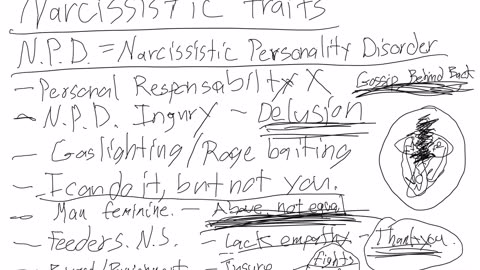 Narcissistic traits
N.P.D. = Narcissistic Personality Disorder
- Personal Responsability X Gossip Behind Back
- N.P.D. Ingury - Delusion
- Gaslighting/Rage baiting
- I can do it, but not you.
- Man feminine. - Above, not equal
- Feeders. N.S. - Lack empathy - Thank you.
fights